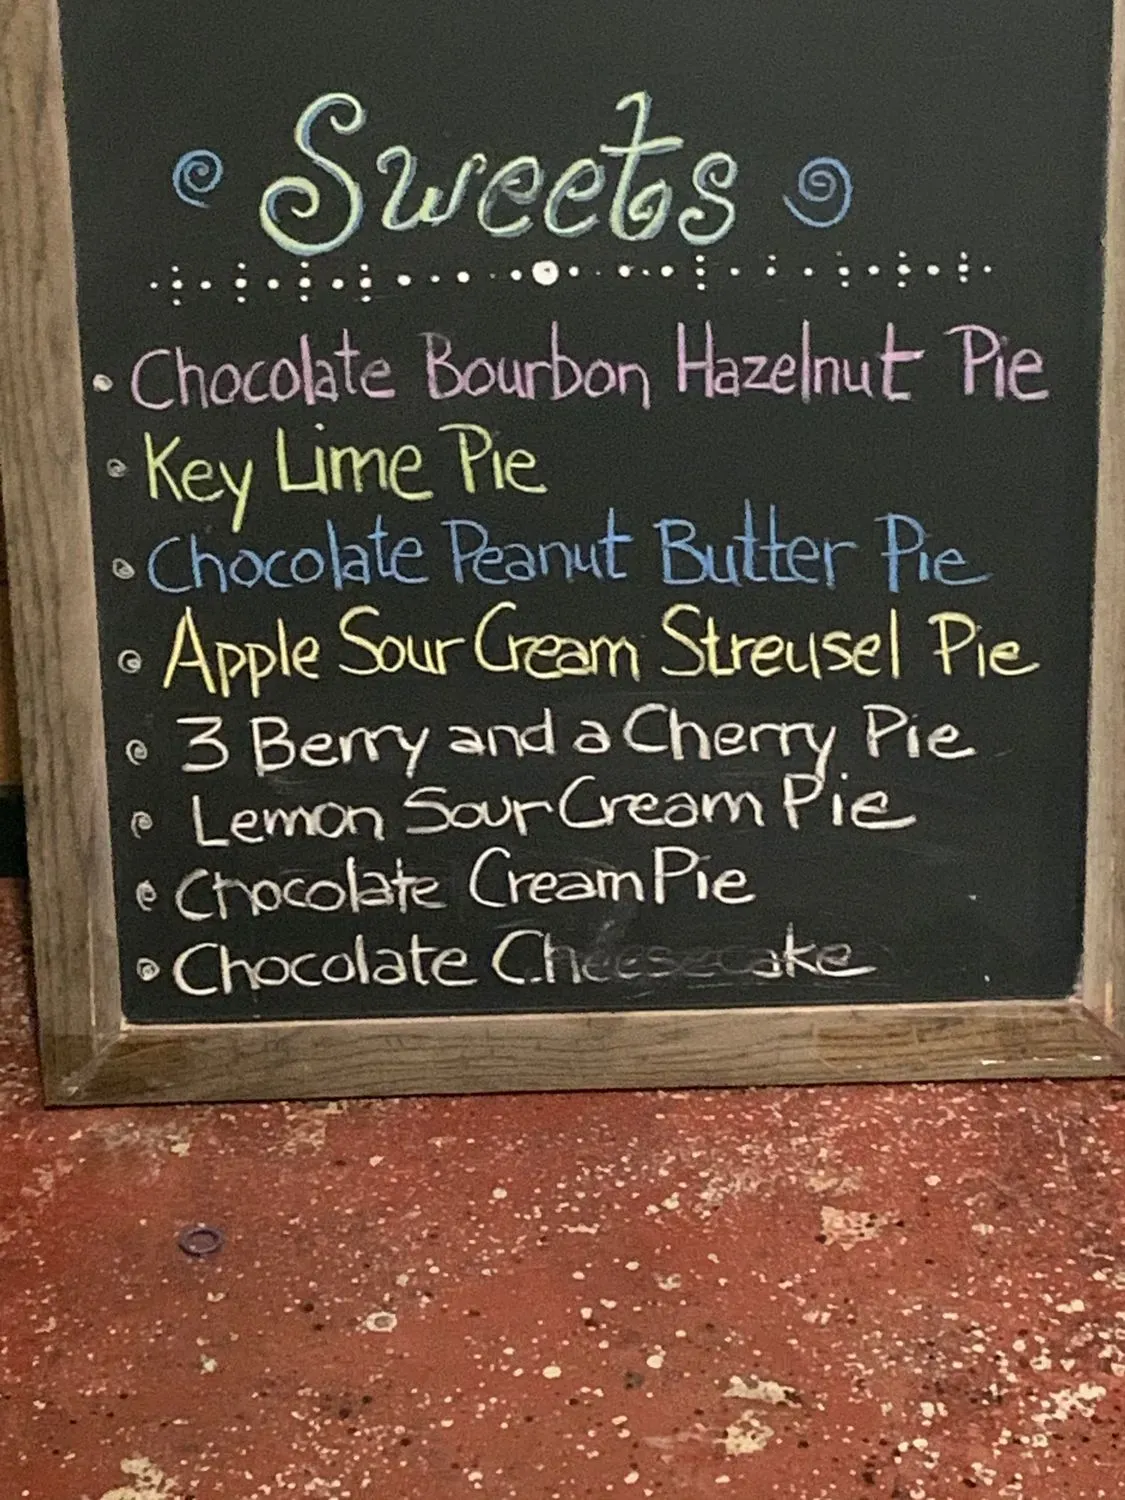 Sweets
Chocolate Bourbon Hazelnut Pie
Key Lime Pie
Chocolate Peanut Butter Pie
Apple Sour Cream Streusel Pie
3 Berry and a Cherry Pie
Lemon Sour Cream Pie
Chocolate Cream Pie
Chocolate Cheesecake